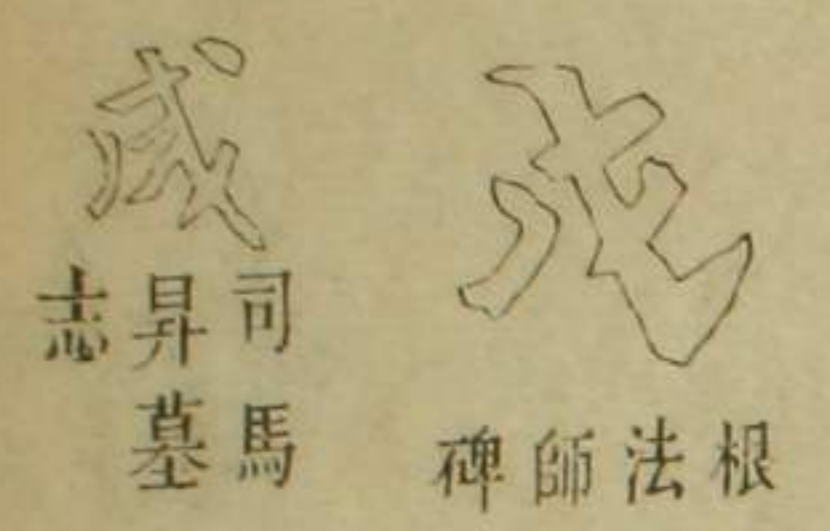 根法師碑
司馬
昇墓
志